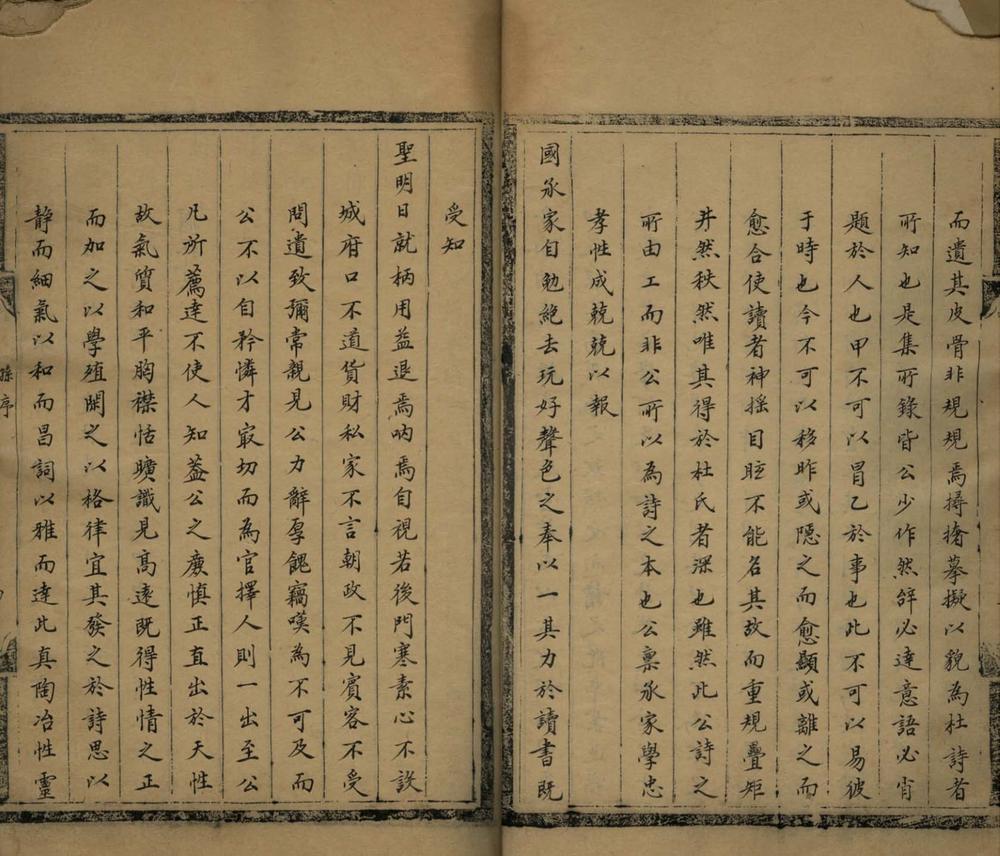 而遺其皮骨非規規焉撏撦摹擬以貌為杜詩者
所知也是集所錄皆公少作然辭必達意語必肖
題於人也甲不可以冒乙於事也此不可以易彼
于時也今不可以移昨或隱之而愈顯或離之而
愈合使讀者神搖目眩不能名其故而重規疊矩
井然秩然唯其得於杜氏者深也雖然此公詩之
所由工而非公所以為詩之本也公稟承家學忠
孝性成兢兢以報
國承家自勉絶去玩好聲色之奉以一其力於讀書既
受知
聖明日就柄用益退焉吶焉自視若後門寒素心不設
城府口不道貨財私家不言朝政不見賓客不受
問遺致彌常親見公力辭厚餽竊嘆為不可及而
公不以自矜憐才㝡切而為官擇人則一出至公
凡所薦達不使人知葢公之廉慎正直出於天性
故氣質和平胸襟恬曠識見高遠既得性情之正
而加之以學殖閑之以格律宜其發之於詩思以
靜而細氣以和而昌詞以雅而達此真陶冶性靈
孫序